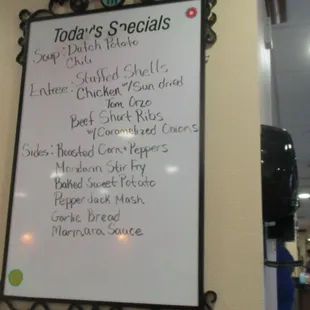 Today's Specials
Soup: Dutch Potato
Chili
Entree: Stuffed Shells
Chicken w/Sun dried
Tom Orzo
Beef Short Ribs
w/Caramelized Onions
Sides: Roasted Corn + Peppers
Mandarin Stir Fry
Baked Sweet Potato
Pepper Jack Mash
Garlic Bread
Marinara Sauce